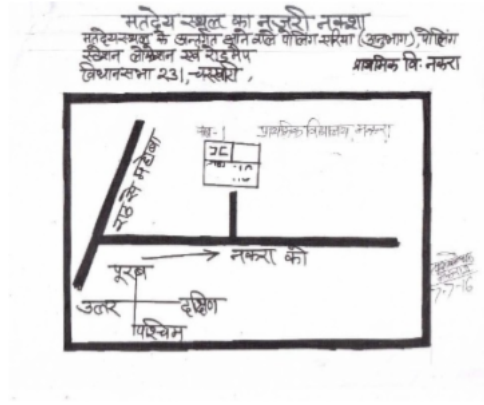 मतदेय स्थल का नजरी नक्शा
मतदेयस्थल के अन्तर्गत आने वाले पोलिंग एरिया (अनुभाग), पोलिंग
स्टेशन लोकेशन एवं रोड मैप
प्राथमिक वि. नकरा
विधानसभा 231,-चरखारी,
प्राथमिक विद्यालय, नकरा
राठ से महोबा
नकरा को
पूरब
उत्तर
दक्षिण
पश्चिम